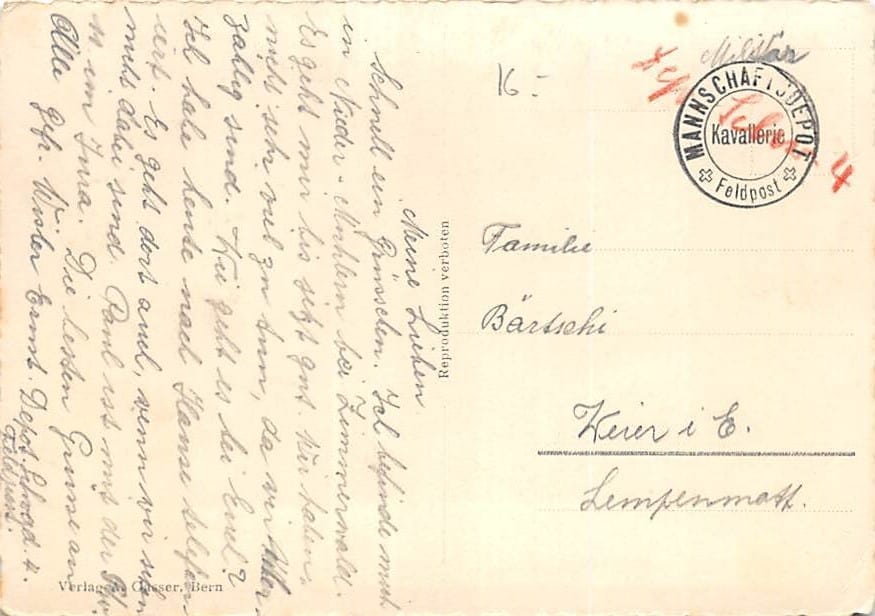 Meine Lieben.
Schnell ein Grüsschen. Ich befinde mich
in Nieder-Muhlern bei Zimmerwald.
Es geht mir bis jetzt gut. Wir haben
nicht sehr viel zu tun, da wir
zählig sind. Wie geht es bei Euch?
Ich habe heute nach Hause telefon
iert. Es geht dort auch, wenn wir schon
nicht dabei sind. Paul ist mit der
im Jura. Die besten Grüsse an
Alle Gefr. Wisler Ernst. Depot. Schwad. 4.
Feldpost.
Reproduktion verboten
Verlag A. Gasser, Bern
16.-
Militär
MANNSCHAFTSDEPOT
Kavallerie
Feldpost
4
Familie
Bärtschi
Weier i E.
Lempenmatt.